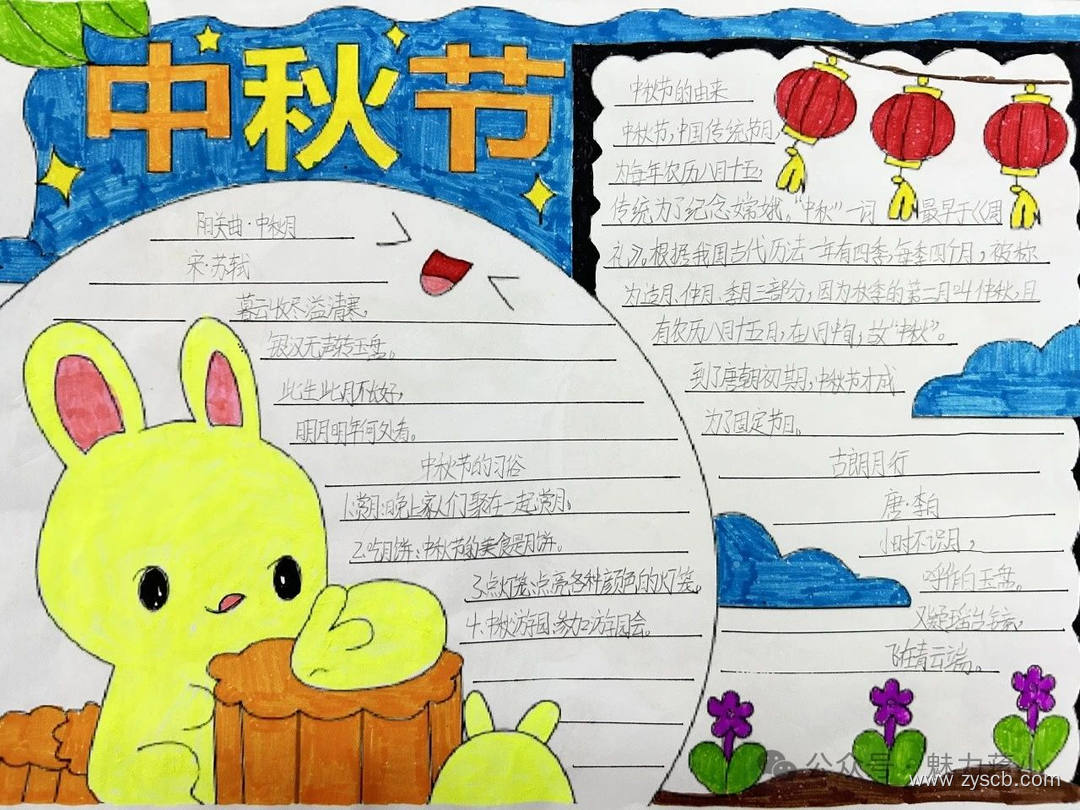 中秋节
阳关曲·中秋月
宋·苏轼
暮云收尽溢清寒,
银汉无声转玉盘。
此生此月不长好,
明月明年何处看。
中秋节的习俗
1.赏月:晚上家人们聚在一起赏月。
2.吃月饼:中秋节的美食是月饼。
3.点灯笼:点亮各种颜色的灯笼。
4.中秋游园:参加游园会。
中秋节的由来
中秋节,中国传统节日,
为每年农历八月十五,
传统为了纪念嫦娥。"中秋"一词 最早于《周
礼》。根据我国古代历法一年有四季,每季四个月,被称
为造月、仲月、季月三部分,因为秋季的第二月叫仲秋,且
有农历八月十五日,在八月中旬,故"中秋"。
到了唐朝初期,中秋节才成
为了固定节日。
古朗月行
唐·李白
小时不识月,
呼作白玉盘。
又疑瑶台镜,
飞在青云端。
公众号·魅力蒋小
www.zyscb.com